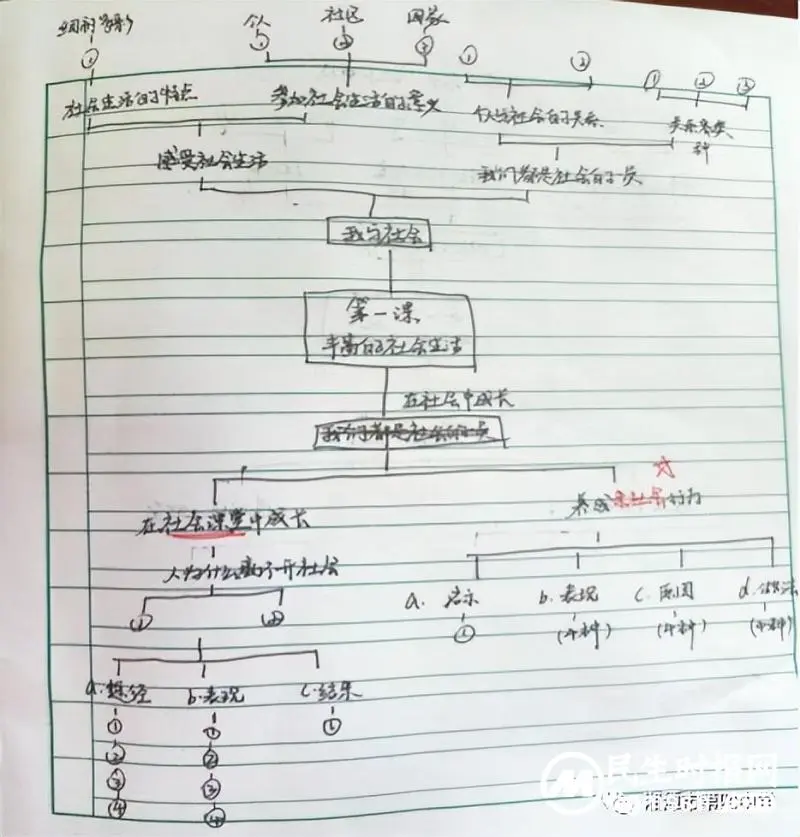 个人
社区
国家
① ② ③ ① ② ① ② ③
社会生活的特点
参加社会生活的意义
个人与社会的关系
关系

感受社会生活
我们都是社会的一员
我与社会
第一课
丰富的社会生活
在社会中成长
我们都是社会的一员
在社会课堂中成长
养成亲社会行为
人为什么离不开社会
① ②
a. 启示
b. 表现
c. 原因
d. 做法
①
(4种)
(4种)
(4种)
a.
b. 表现
c. 结果
① ① ①
② ②
③ ③
④ ④
民生时报网